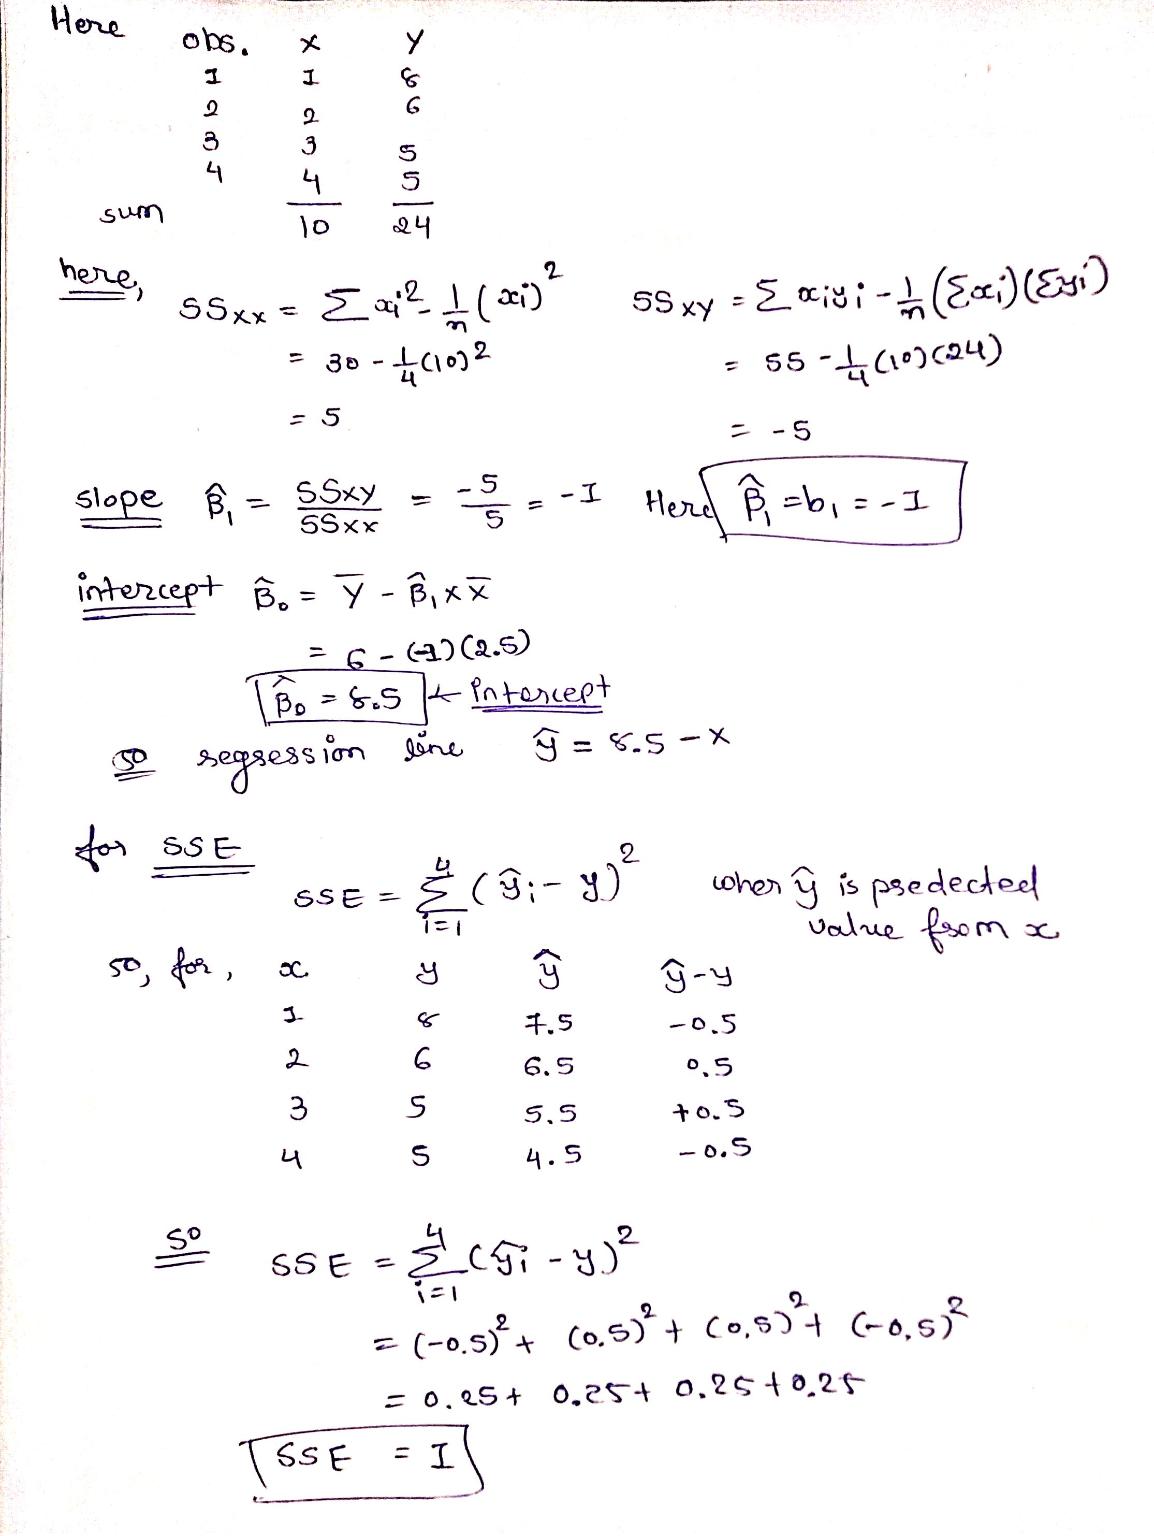 Here obs. x y
1 1 8
2 2 6
3 3 5
4 4 5
sum 10 24
here, SSxx = Σxi² - 1/n (xi)² SSxy = Σxiyi - 1/n (Σxi)(Σyi)
= 30 - 1/4 (10)² = 55 - 1/4 (10)(24)
= 5 = -5
slope β̂₁ = SSxy/SSxx = -5/5 = -1 Here β̂₁ = b₁ = -1
intercept β̂₀ = ȳ - β̂₁ x x̄
= 6 - (-1)(2.5)
β̂₀ = 8.5 ← Intercept
so regression line ŷ = 8.5 - x
for SSE
SSE = Σ_{i=1}^{4} (ŷi - y)² wher ŷ is predected
value from x
so, for, x y ŷ ŷ-y
1 8 7.5 -0.5
2 6 6.5 0.5
3 5 5.5 +0.5
4 5 4.5 -0.5
so SSE = Σ_{i=1}^{4} (ŷi - y)²
= (-0.5)² + (0.5)² + (0.5)² + (-0.5)²
= 0.25 + 0.25 + 0.25 + 0.25
SSE = 1